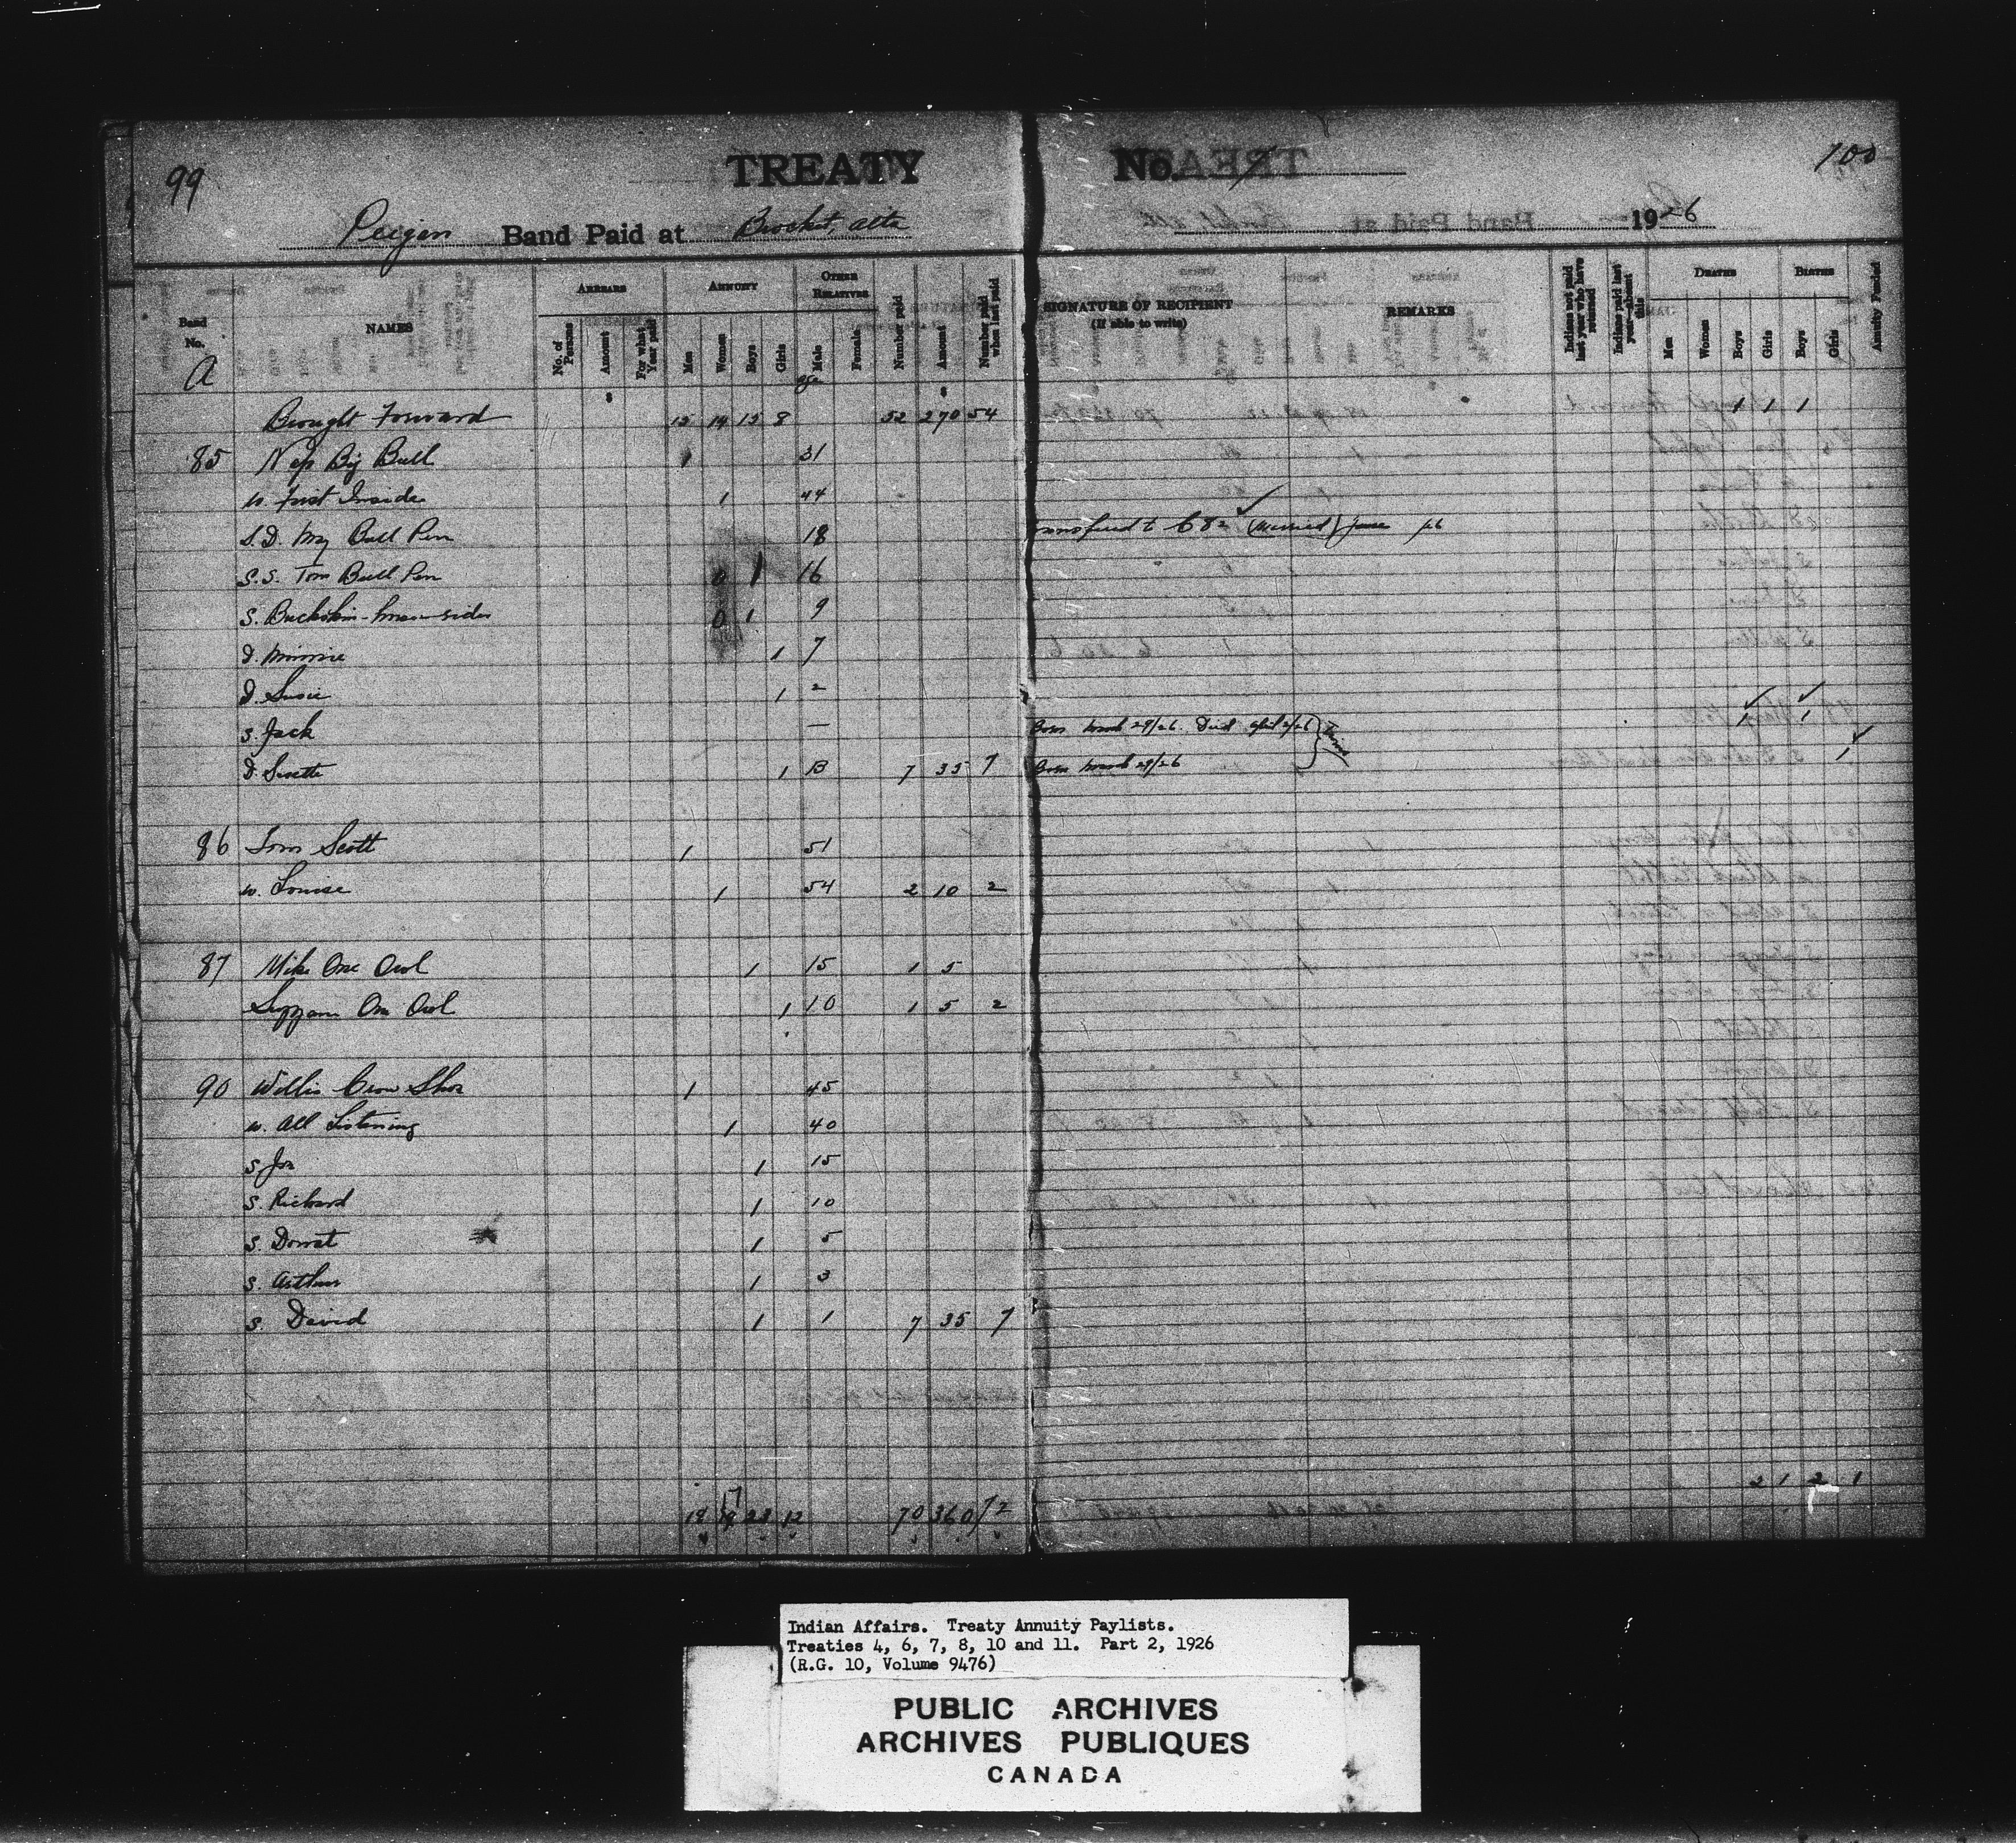 99
TREATY No. 7
100
Peigan Band Paid at Brocket, Alta 1926
Band No. NAMES ARREARS ANNUITY OTHER RELATIVES Number paid Amount Number paid when last paid SIGNATURE OF RECIPIENT (If able to write) REMARKS Indians not paid last year who have returned Indians paid last year absent this DEATHS BIRTHS Annuity Funded
No. of Persons Amount For what Year paid Men Women Boys Girls Male Female Men Women Boys Girls Boys Girls
A age
Brought Forward 15 14 15 8 52 270 54 1 1 1
85 Nap Big Bull 1 31
w. First Inside 1 44
S.D. May Bull Pen 18 Transferred to 682 (Married) June /26
S.S. Tom Bull Pen 0 1 16
S. Buckskin 0 1 9
D. Minnie 1 7
D. Susie 1 2
S. Jack — Born March 29/26. Died April 2/26 Twins 1 1
D. Susette 1 B 7 35 7 Born March 29/26 1
86 Tom Scott 1 51
w. Louise 1 54 2 10 2
87 Mike One Owl 1 15 1 5
One Owl 1 10 1 5 2
90 Willis Crow Shoe 1 45
w. All Listening 1 40
S. Joe 1 15
S. Richard 1 10
S. 1 5
S. Arthur 1 3
S. David 1 1 7 35 7
18 17 23 12 70 360 72 2 1 2 1
Indian Affairs. Treaty Annuity Paylists.
Treaties 4, 6, 7, 8, 10 and 11. Part 2, 1926
(R.G. 10, Volume 9476)
PUBLIC ARCHIVES
ARCHIVES PUBLIQUES
CANADA